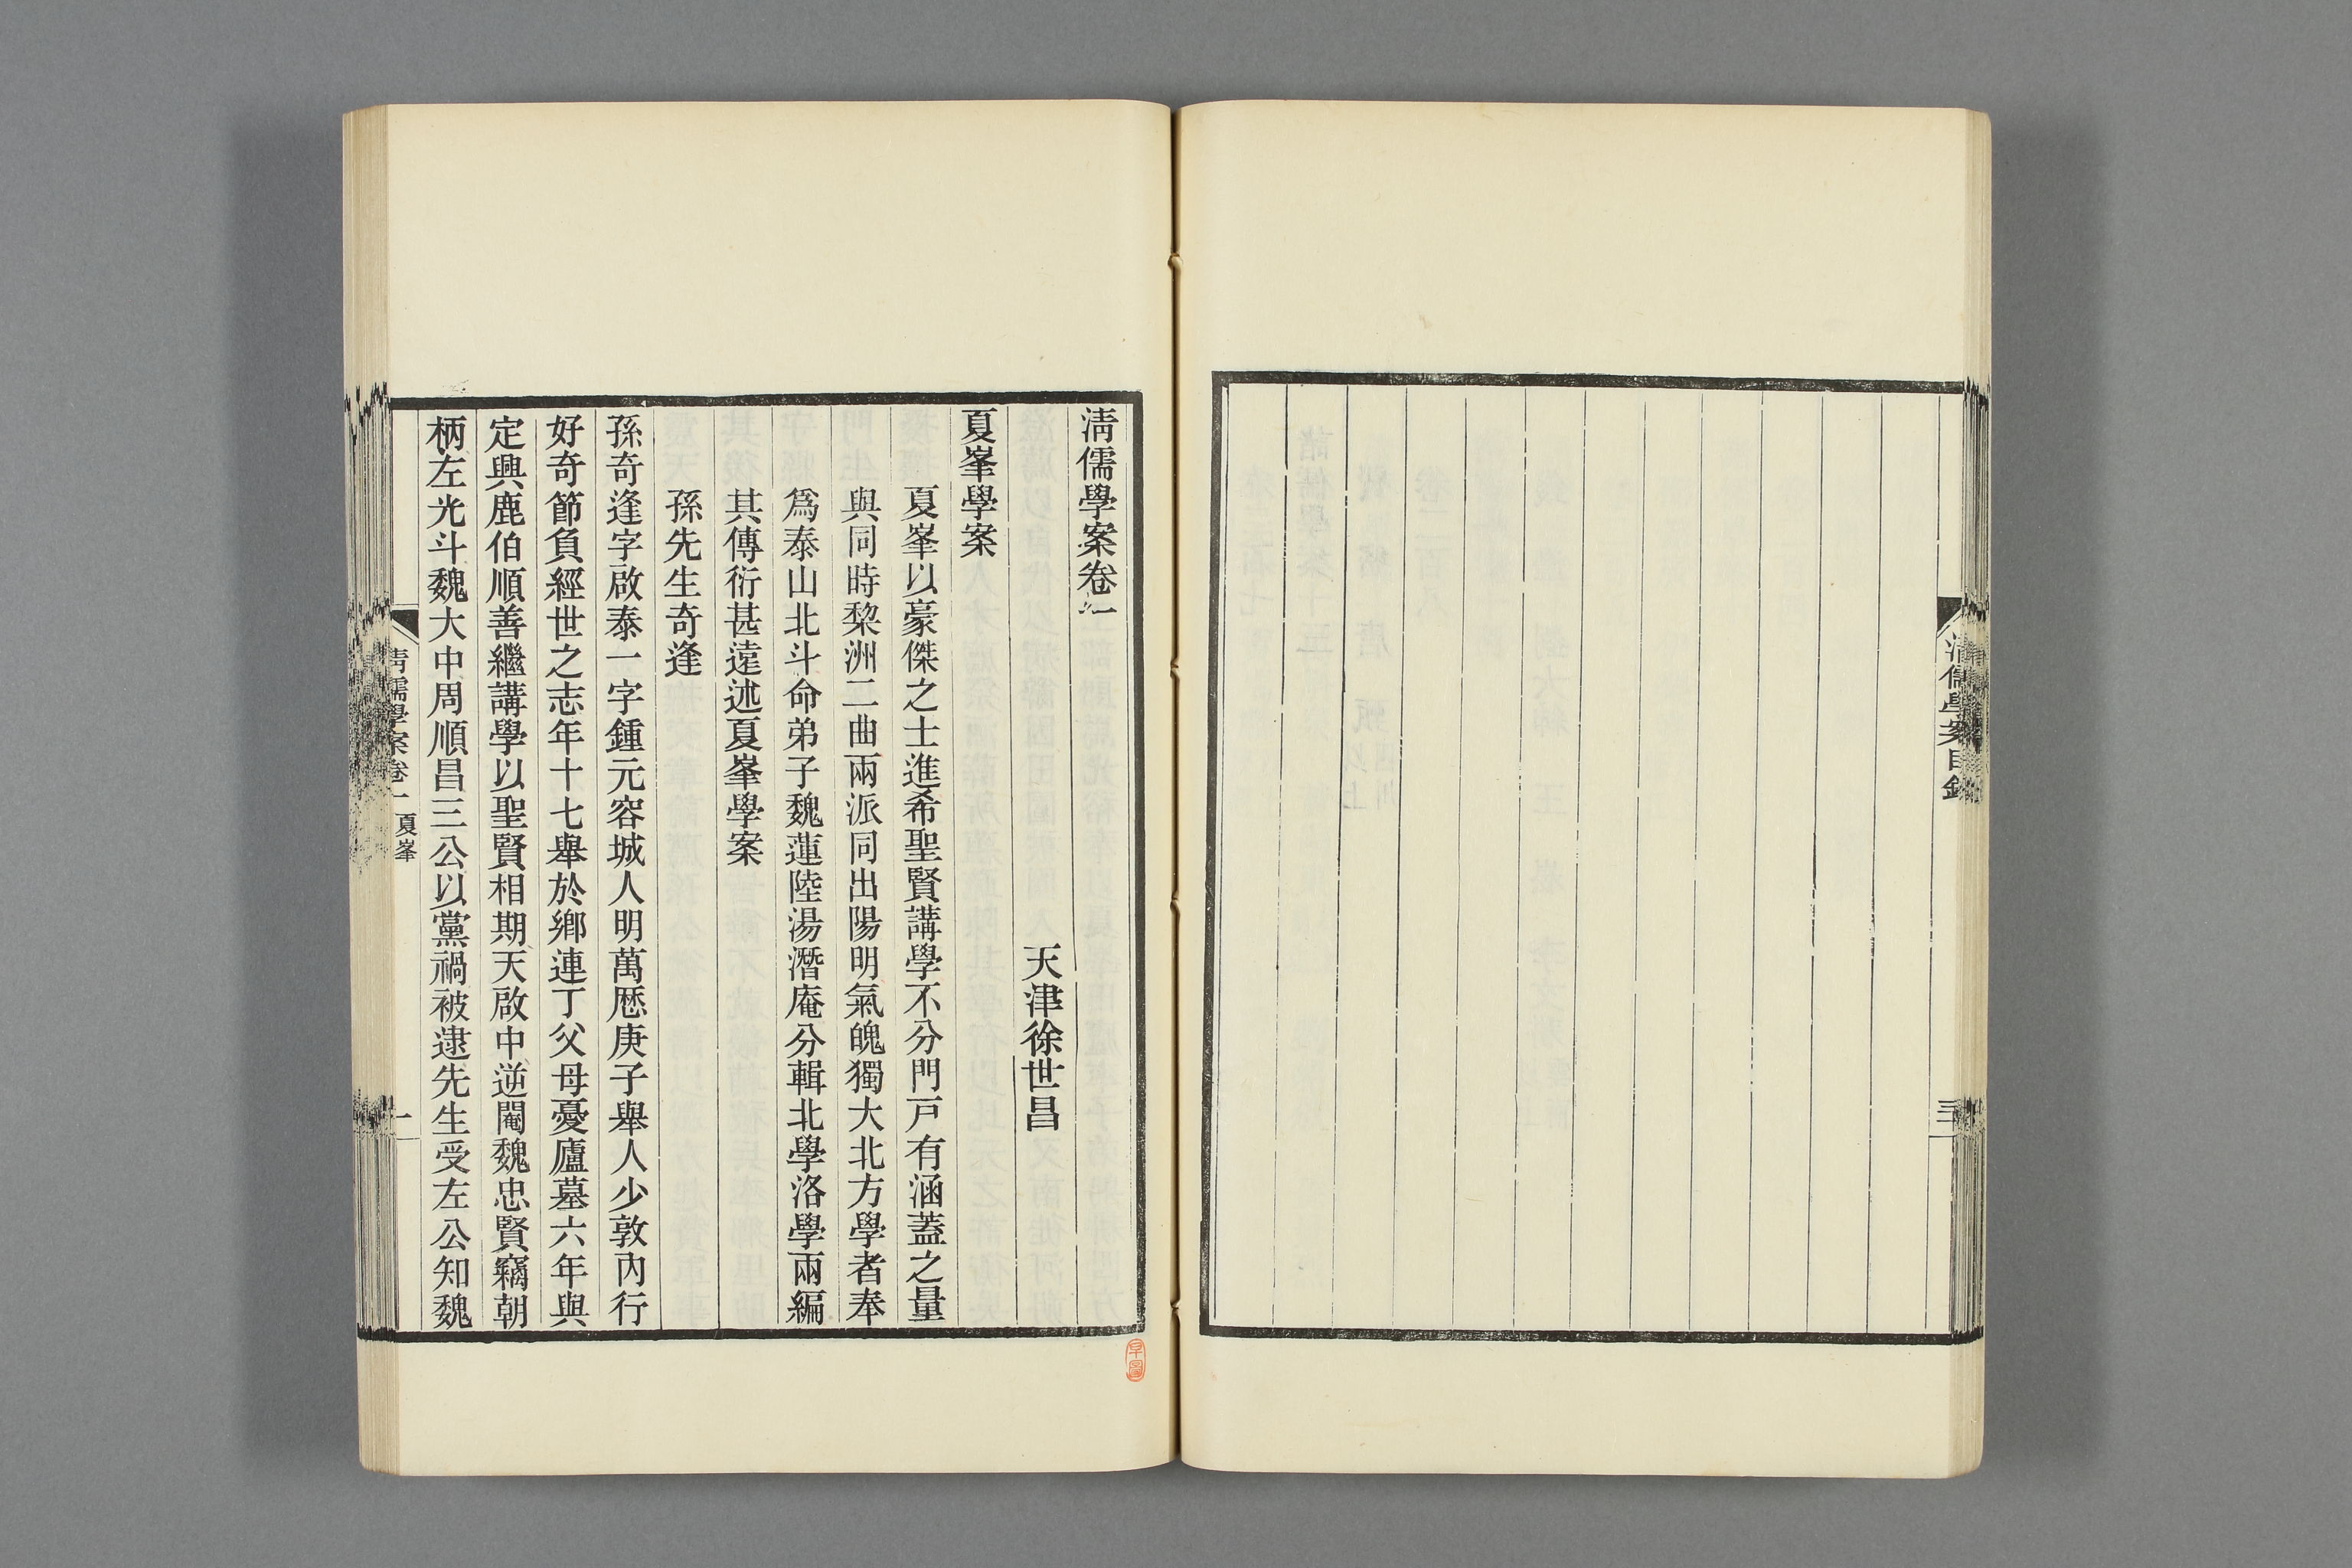 清儒學案目錄
三
清儒學案卷一
天津徐世昌
夏峯學案
夏峯以豪傑之士進希聖賢講學不分門戸有涵蓋之量
與同時棃洲二曲兩派同出陽明氣魄獨大北方學者奉
爲泰山北斗命弟子魏蓮陸湯潛庵分輯北學洛學兩編
其傳衍甚遠述夏峯學案
孫先生奇逢
孫奇逢字啟泰一字鍾元容城人明萬厯庚子舉人少敦內行
好奇節負經世之志年十七舉於鄉連丁父母憂廬墓六年與
定興鹿伯順善繼講學以聖賢相期天啟中逆閹魏忠賢竊朝
柄左光斗魏大中周順昌三公以黨禍被逮先生受左公知魏
清儒學案卷一 夏峯
一